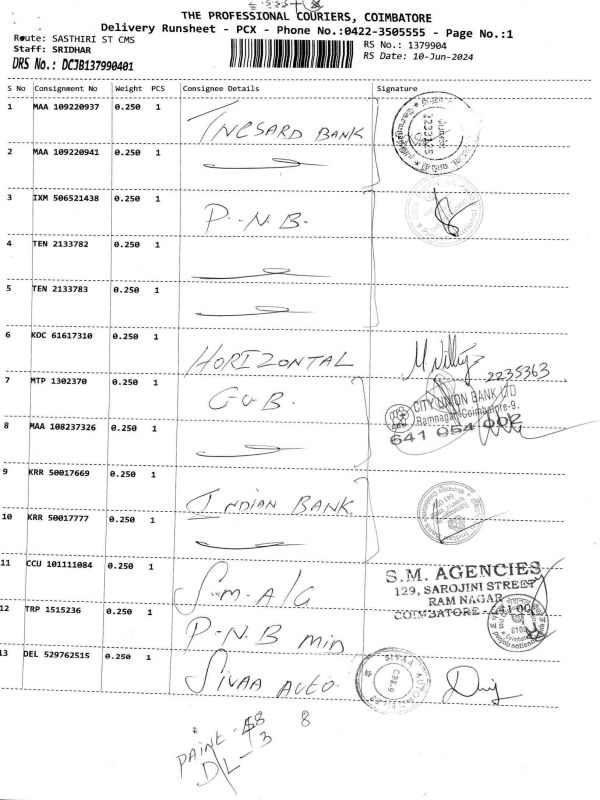 THE PROFESSIONAL COURIERS, COIMBATORE
Delivery Runsheet - PCX - Phone No.:0422-3505555 - Page No.:1
Route: SASTHIRI ST CMS
Staff: SRIDHAR
RS No.: 1379904
DRS No.: DCJB137990401
RS Date: 10-Jun-2024
S No Consignment No Weight PCS Consignee Details Signature
1 MAA 109220937 0.250 1
BANK
2 MAA 109220941 0.250 1
3 IXM 506521438 0.250 1 P.N.B.
4 TEN 2133782 0.250 1
5 TEN 2133783 0.250 1
6 KOC 61617310 0.250 1 HORIZONTAL
2235363
7 MTP 1302370 0.250 1 C.U.B.
CITY UNION BANK LTD
Ramnagar, Coimbatore-9.
8 MAA 108237326 0.250 1
641 054
9 KRR 50017669 0.250 1 INDIAN BANK
10 KRR 50017777 0.250 1
11 CCU 101111084 0.250 1 S.M. A/G
S.M. AGENCIES
129, SAROJINI STREET
RAM NAGAR
COIMBATORE - 641 00
12 TRP 1515236 0.250 1 P.N.B min
13 DEL 529762515 0.250 1 SIVAA AUTO
SIVAA AUTOMOBILES
CBE-9
8
DL-3